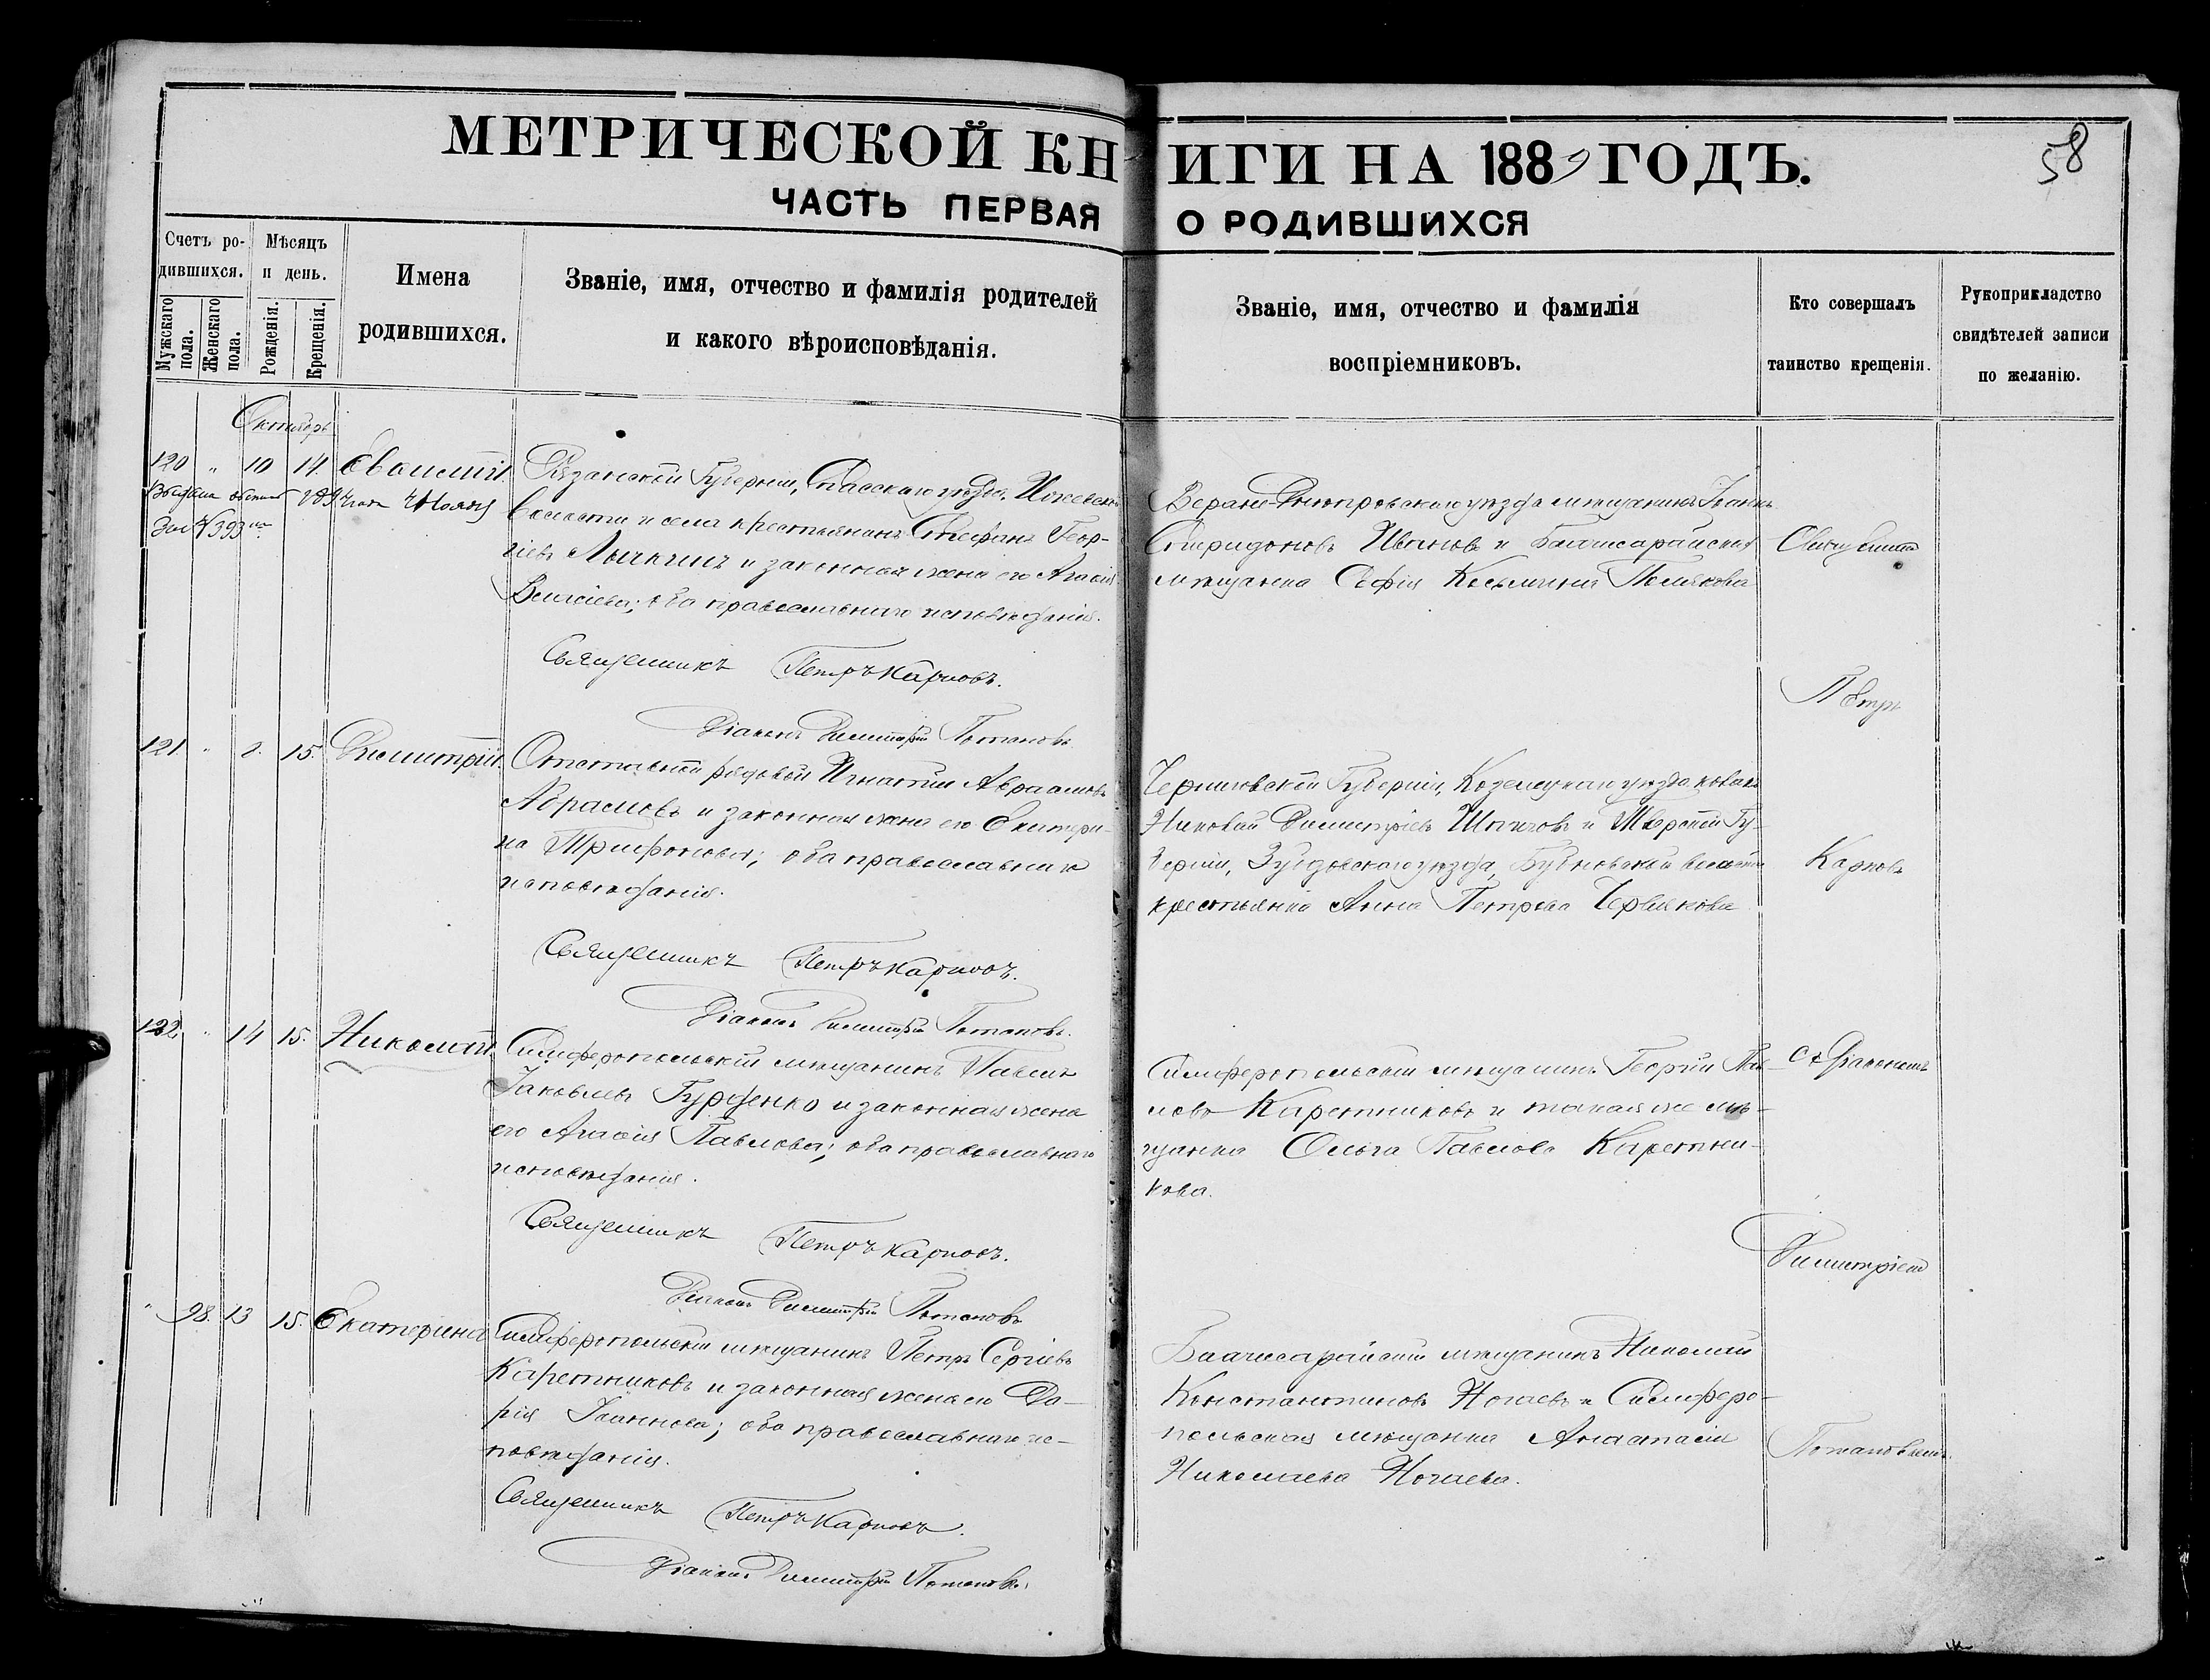 МЕТРИЧЕСКОЙ КНИГИ НА 1889 ГОДЪ.
58
ЧАСТЬ ПЕРВАЯ О РОДИВШИХСЯ
Счетъ ро-
дившихся.
Мужскаго пола.
Женскаго пола.
Мѣсяцъ
и день.
Рожденія.
Крещенія.
Имена
родившихся.
Званіе, имя, отчество и фамилія родителей
и какого вѣроисповѣданія.
Званіе, имя, отчество и фамилія
воспріемниковъ.
Кто совершалъ
таинство крещенія.
Рукоприкладство
свидѣтелей записи
по желанію.
Октябрь
120 " 10 14.
За № 393
Рязанской Губерніи, Спасскаго уѣзда, Ижевской
волости и села крестьянинъ Стефанъ Геор-
гіевъ и законная жена его Агафія
оба православнаго исповѣданія.
Священникъ Петръ Карповъ.
Діаконъ Димитрій Потаповъ
Днѣпровскаго уѣзда мѣщанинъ Іоаннъ
Спиридоновъ Ивановъ и Бахчисарайская
мѣщанка Софія Косьмина Полякова
Священникъ
Петръ
Карповъ
съ Діакономъ
Димитріемъ
Потаповымъ.
121. " 2. 15. Димитрій.
Отставной рядовой Игнатій Авраамовъ
Абрамовъ и законная жена его Екатери-
на Трифонова; оба православнаго
исповѣданія.
Священникъ Петръ Карповъ.
Діаконъ Димитрій Потаповъ.
Черниговской Губерніи, Козелецкаго уѣзда козакъ
Николай Димитріевъ и Тверской Гу-
берніи, Зубцовскаго уѣзда, волости
крестьянка Анна Петрова Червякова
122. " 14 15. Николай.
Симферопольскій мѣщанинъ Павелъ
Іаковлевъ Гурженко и законная жена
его Агафія Павлова; оба православнаго
исповѣданія.
Священникъ Петръ Карповъ.
Діаконъ Димитрій Потаповъ
Симферопольскій мѣщанинъ Георгій Пав-
ловъ Каретниковъ и такая же мѣ-
щанка Ольга Павлова Каретни-
кова.
" 98. 13 15. Екатерина
Симферопольскій мѣщанинъ Петръ Сергіевъ
Каретниковъ и законная жена его Да-
рія Іоаннова; оба православнаго ис-
повѣданія.
Священникъ Петръ Карповъ.
Діаконъ Димитрій Потаповъ.
Бахчисарайскій мѣщанинъ Николай
Константиновъ Ногаевъ и Симферо-
польская мѣщанка Анастасія
Николаева Ногаева.